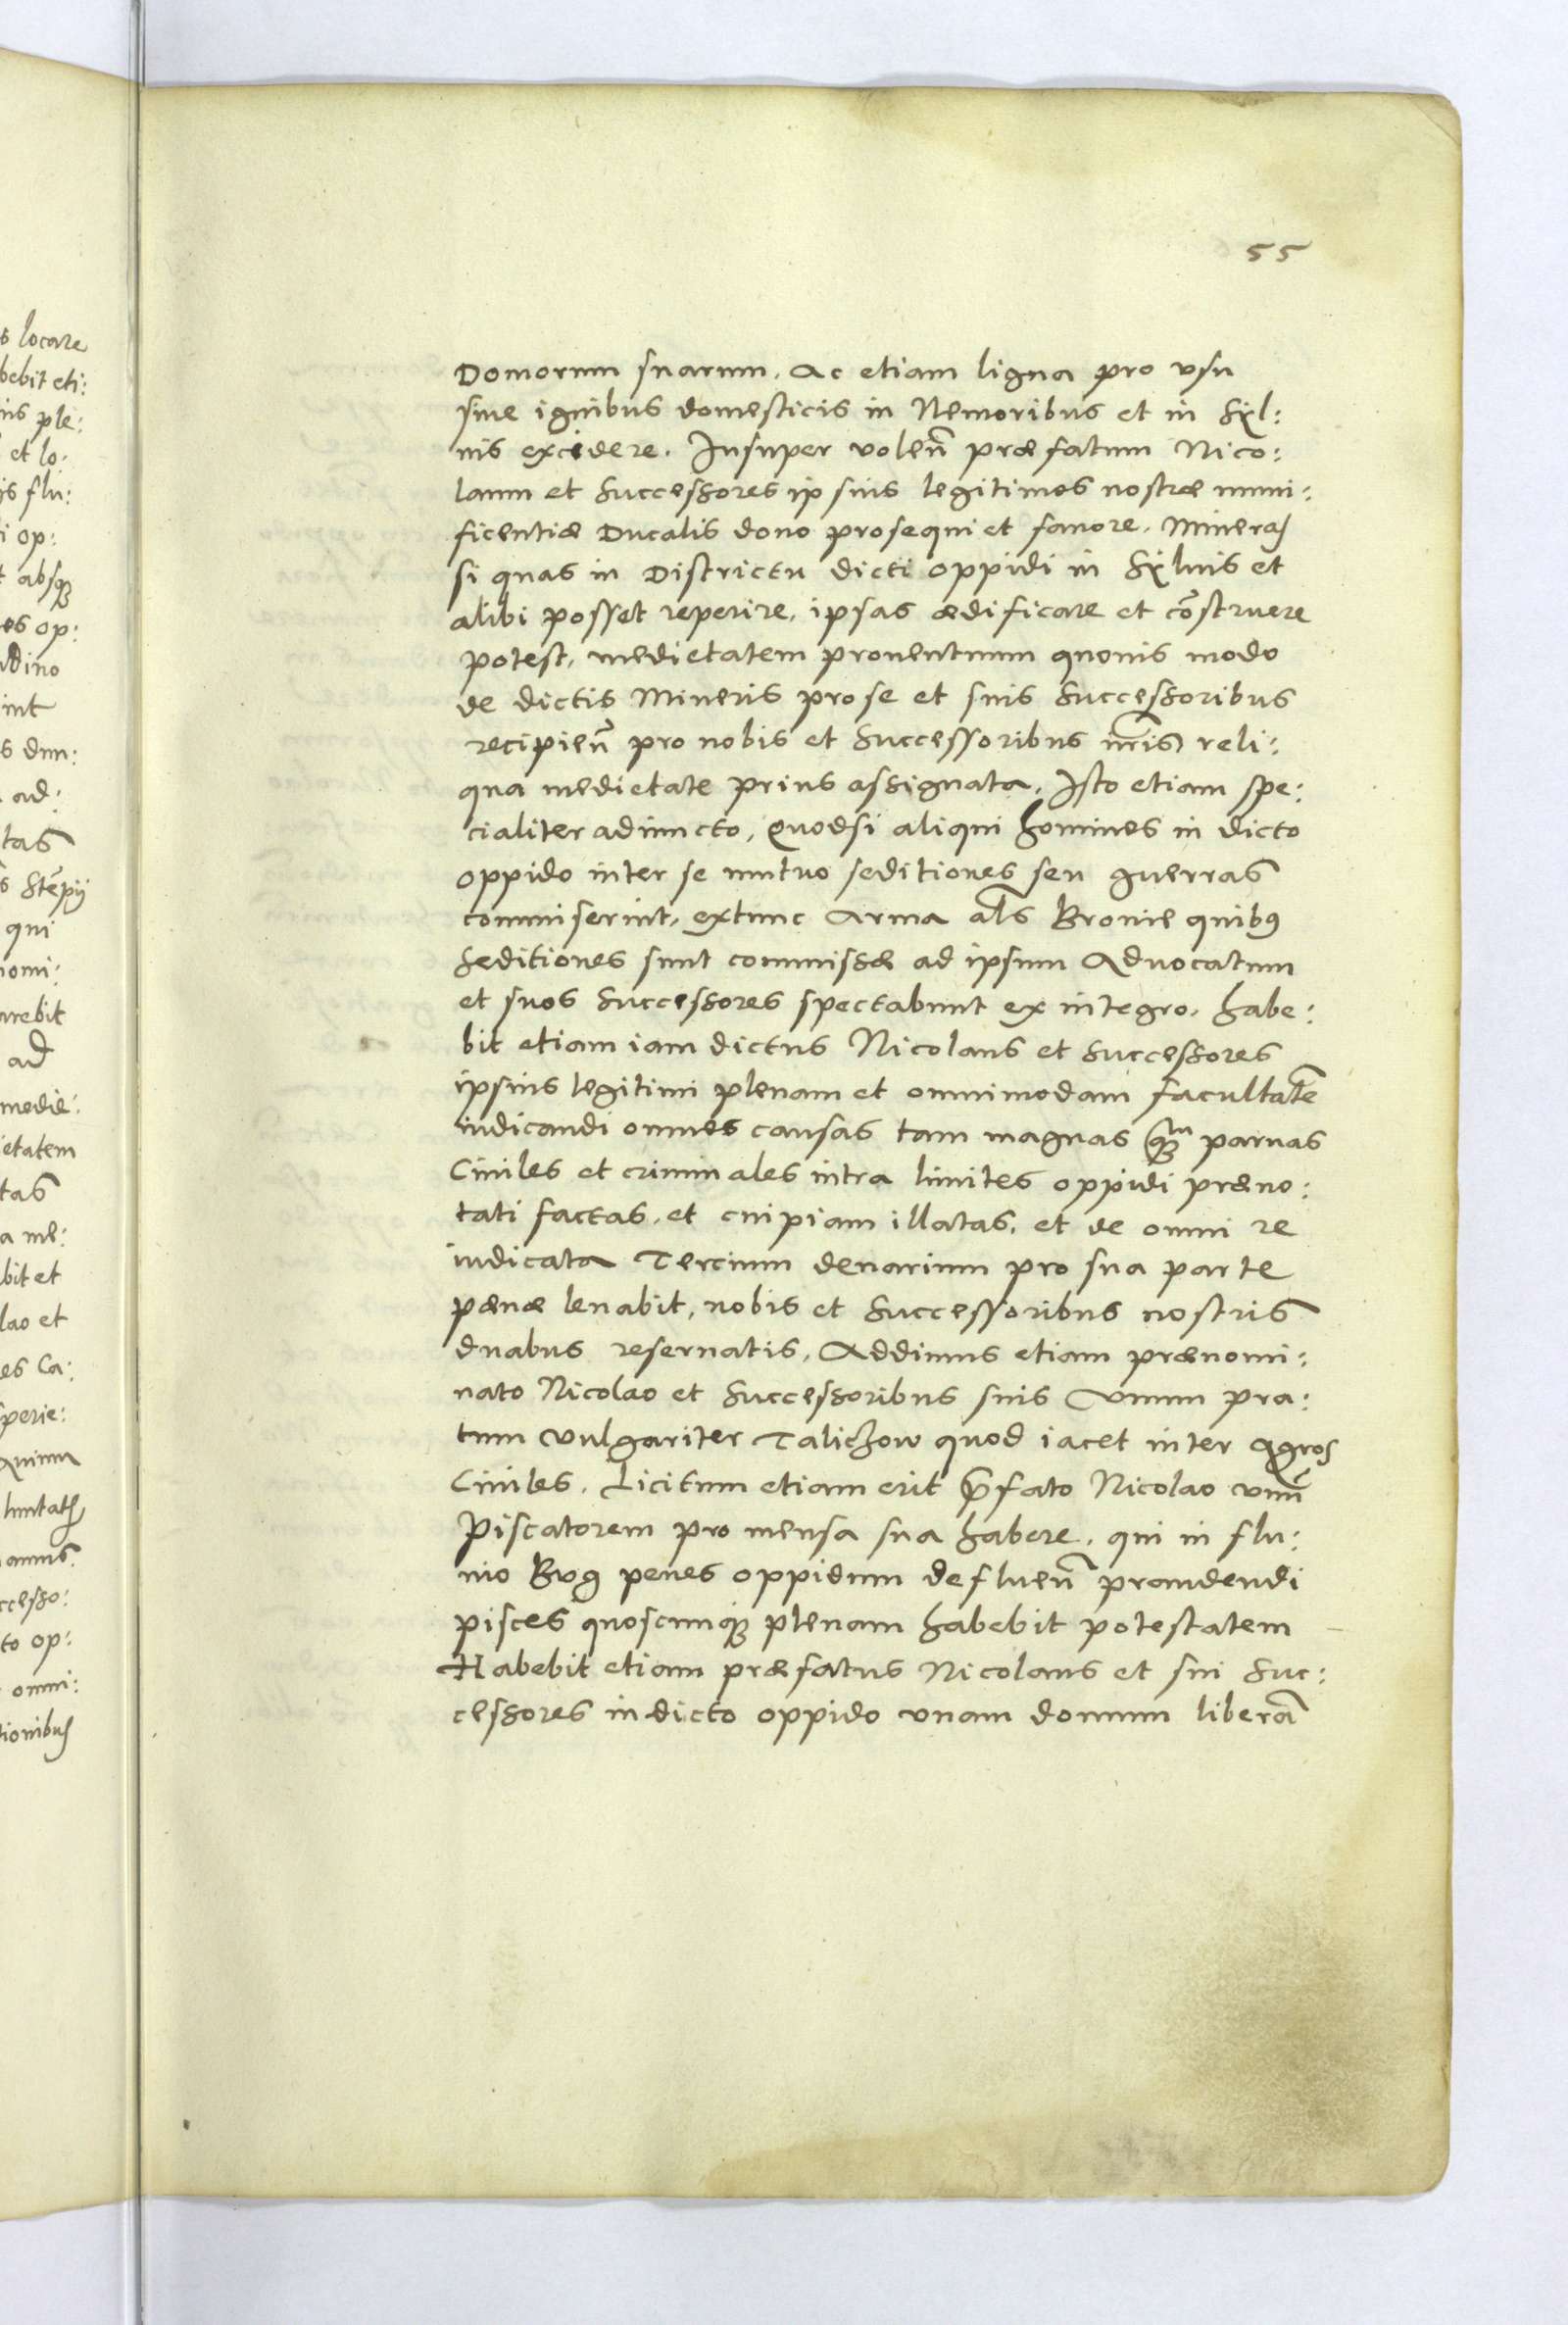 55
Domorum suarum, Ac etiam ligna pro vsu
siue ignibus domesticis in Nemoribus et in Syl:
uis excidere. Insuper volen̄ præfatum Nico:
laum et successores ipsius legitimos nostræ muni:
ficentiæ Ducalis dono prosequi et fauore. Mineras
si quas in Districtu dicti oppidi in Syluis et
alibi posset reperire, ipsas ædificare et cōstruere
potest, medietatem prouentuum quouis modo
de dictis Mineris pro se et suis successoribus
recipien̄ pro nobis et successoribus nr̄is reli:
qua medietate prius assignata. Isto etiam spe:
cialiter adiuncto, Quodsi aliqui homines in dicto
oppido inter se mutuo seditiones seu guerras
commiserint, extunc Arma al̄s Bronie quibus
seditiones sunt commissæ ad ipsum Aduocatum
et suos successores spectabunt ex integro. habe:
bit etiam iam dictus Nicolaus et successores
ipsius legitimi plenam et omnimodam facultatē
iudicandi omnes causas tam magnas qm̄ paruas
Ciuiles et criminales intra limites oppidi præno:
tati factas, et cuipiam illatas, et de omni re
iudicata Tercium denarium pro sua parte
pænæ leuabit, nobis et successoribus nostris
duabus reseruatis. Addimus etiam prænomi:
nato Nicolao et successoribus suis Vnum pra:
tum vulgariter Talichow quod iacet inter agros
Ciuiles. Licitum etiam erit p̄fato Nicolao vnū
Piscatorem pro mensa sua habere, qui in flu:
uio Bug penes oppidum defluen̄ prandendi
pisces quoscunq̨ plenam habebit potestatem
Habebit etiam præfatus Nicolaus et sui suc:
cessores in dicto oppido vnam domum liberā
s locare
bebit eti:
ple:
et lo:
flu:
i op:
t absq̨
es op:
int
ad:
tas
qui
nomi:
ad
medie:
ietatem
tas
a me:
bit et
lao et
es Ca:
perie:
amus
ccesso:
to op:
omni:
tionibus